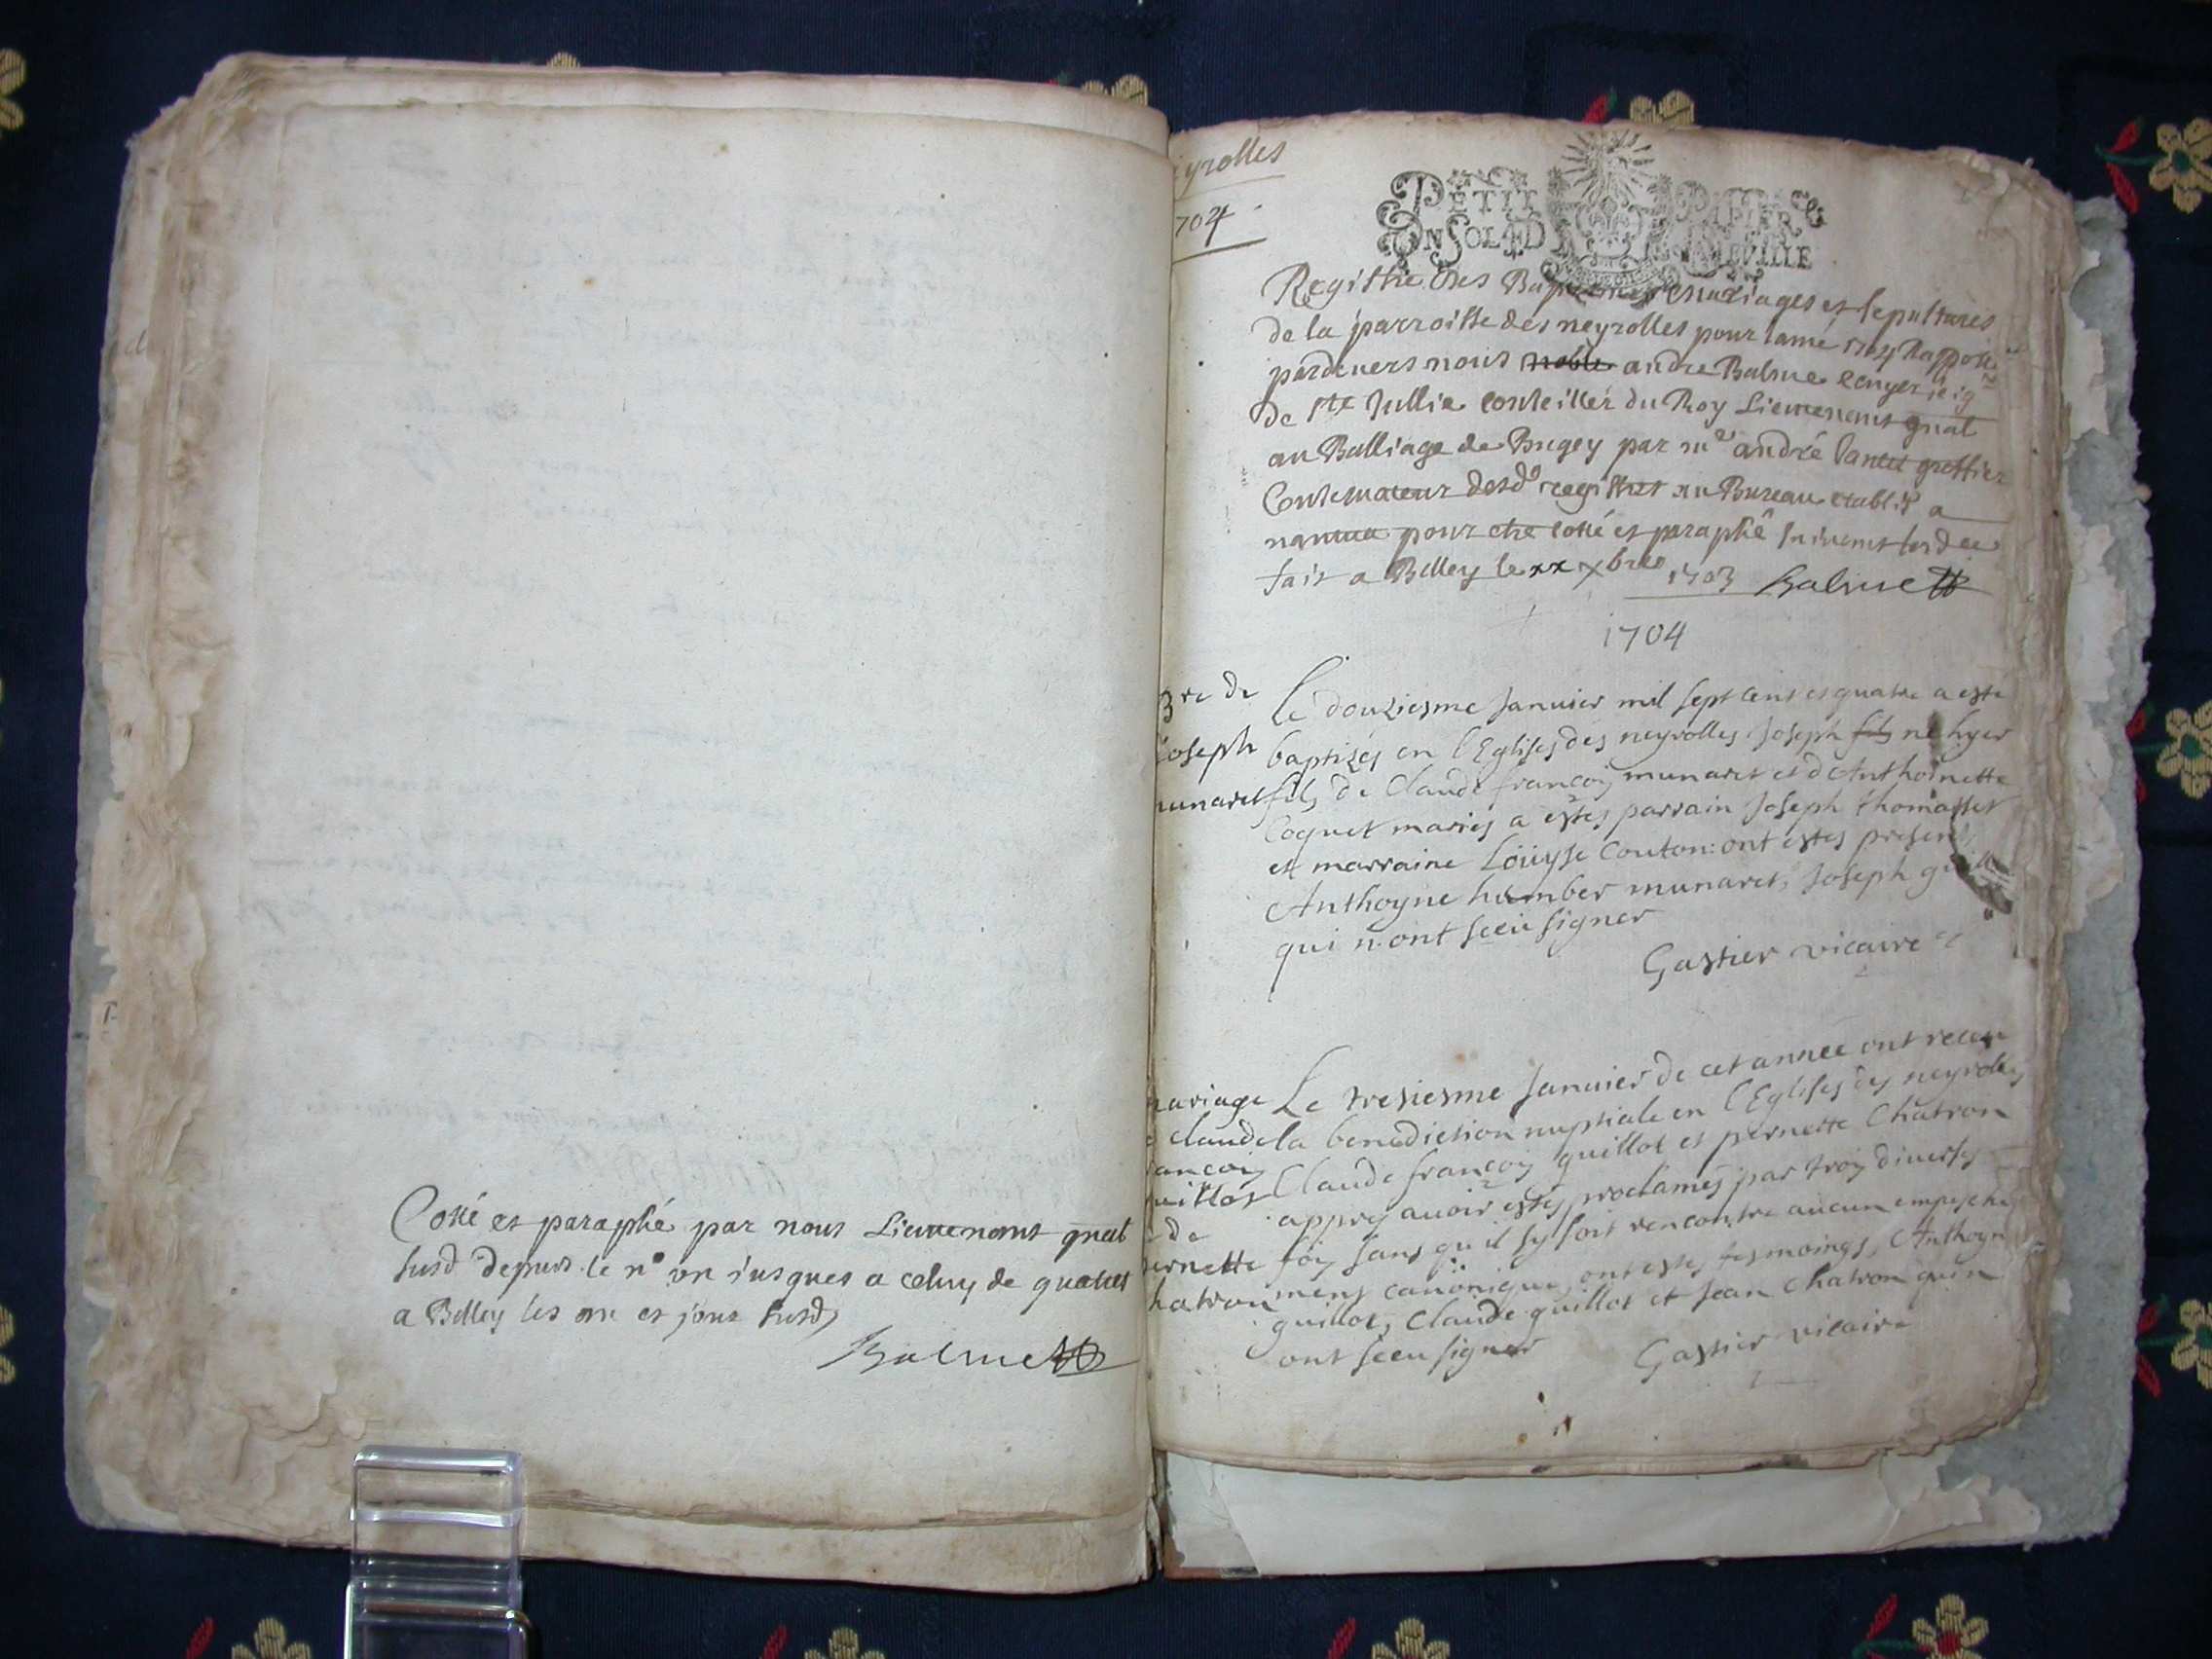 Cotté et paraphé par nous Lieutenant gnal
susd depuis le n° un jusques a celuy de quatres
a Belley les an et jour susd
Balme
yrolles
704
PETIT PAPIER
UN SOL 4 D LE VILLE
Registre des Baptemes mariages et sepultures
de la parroisse des neyrolles pour lanné 1704 Rapporté
pardevers nous noble andre Balme ecuyer seigr
de Ste Jullie conseiller du Roy Lieutenant gnal
au Balliage de Bugey par me andré greffier
Conservateur desd registres au Bureau etably a
nantua pour etre cotté et paraphé suivant
fait a Belley le xx xbre 1703 Balme
1704
re de
Joseph
munaret
Le douziesme Januier mil sept cens et quatre a esté
baptizés en l'Eglises des neyrolles Joseph fils né hyer
fils de Claude françois munaret et d'Anthoinette
Coquet mariés a estés parrain Joseph thomasset
et marraine Loüyse Couton: ont estés presens
Anthoyne humber munaret, Joseph
qui n'ont sceu signer
Gastier vicaire
mariage
e Claude
rancois
uillot
de
ernette
hatron
Le tresiesme Januier de cet année ont receu
la benediction nuptiale en l'Eglises des neyrolles
Claude françois guillot et pernette Chatron
appres auoir estés proclamés par trois diuerses
fois sans qu'il sy soit rencontre aucun empeche
ment canonique, ont estés tesmoings, Anthoyn
guillot, Claude guillot et Jean Chatron qui n
ont sceu signer Gastier vicaire